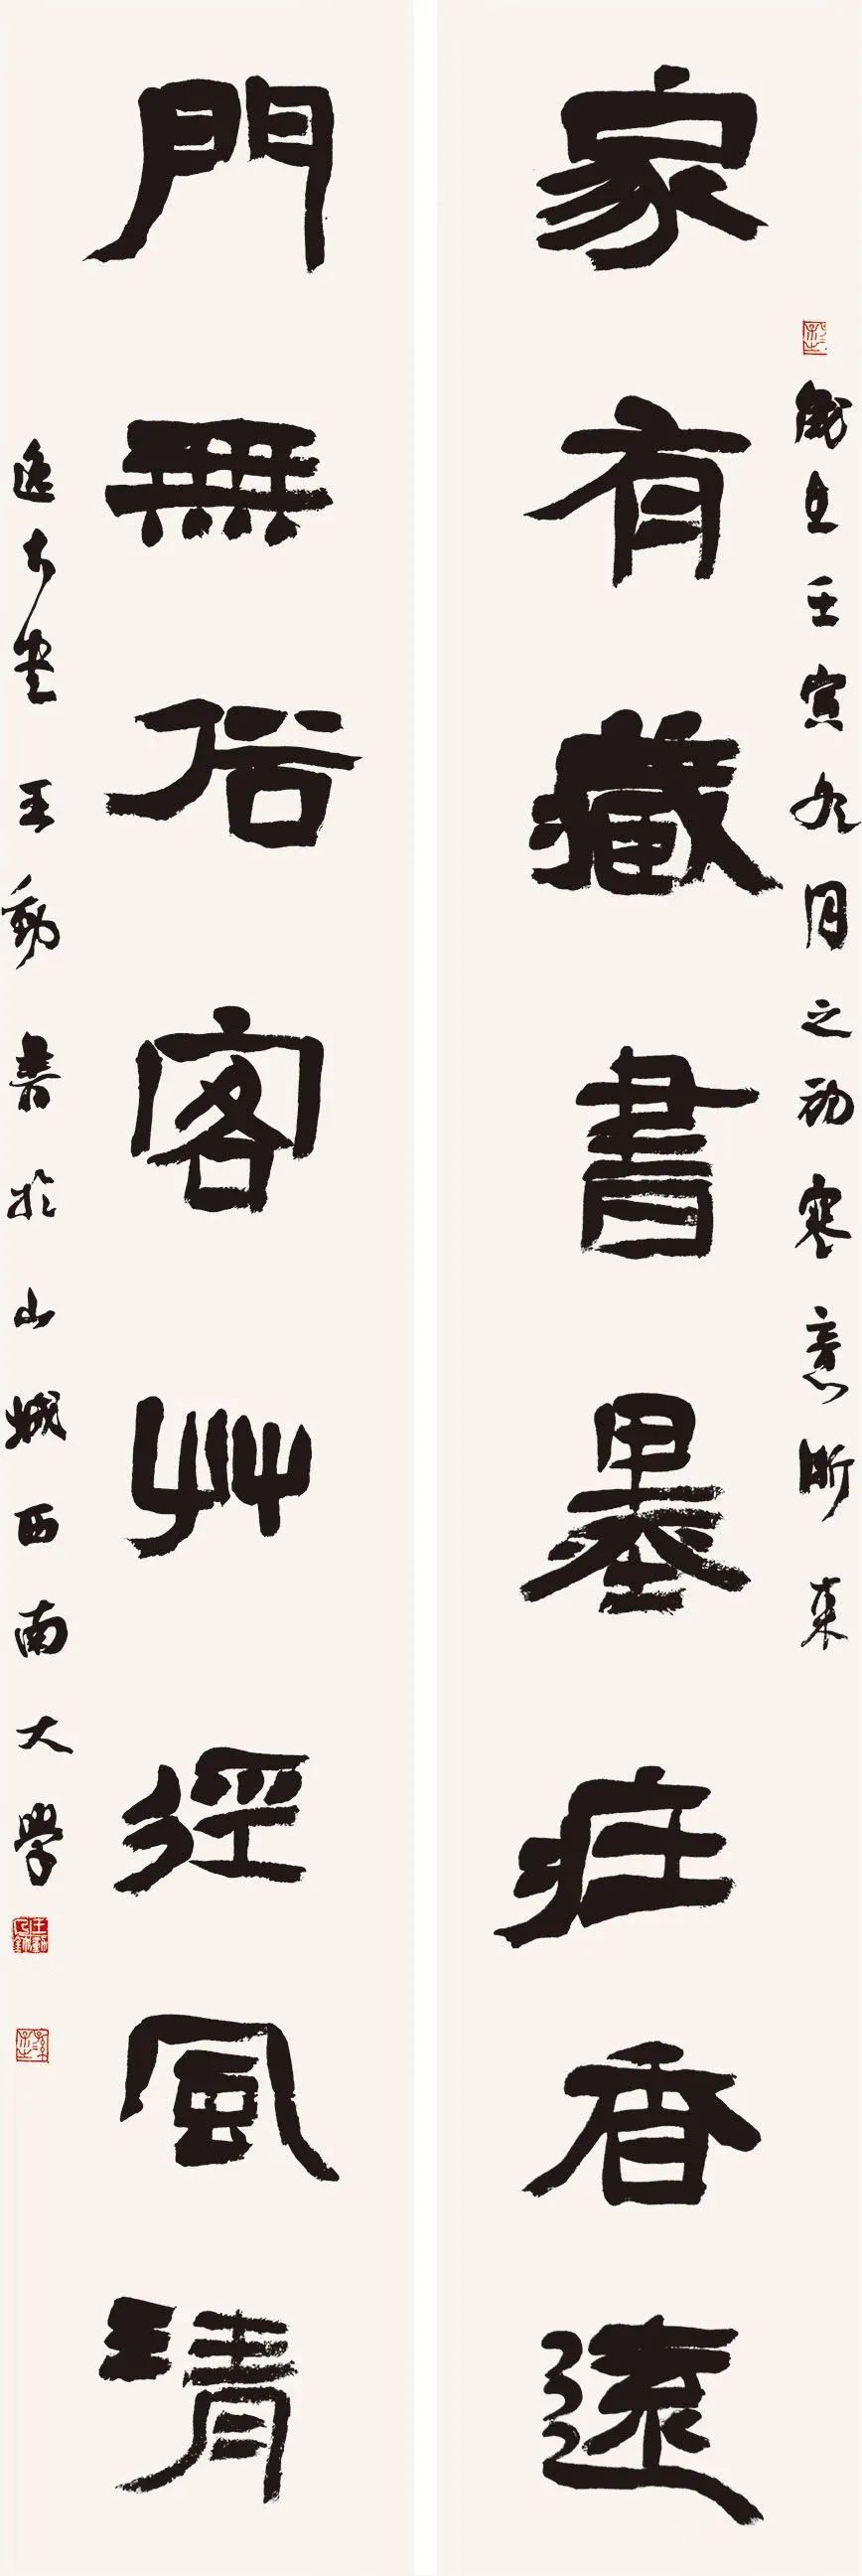 家有藏書墨庄香遠
歲在壬寅九月之初寒意漸來
門無俗客艸徑風清
王動書於山城西南大學